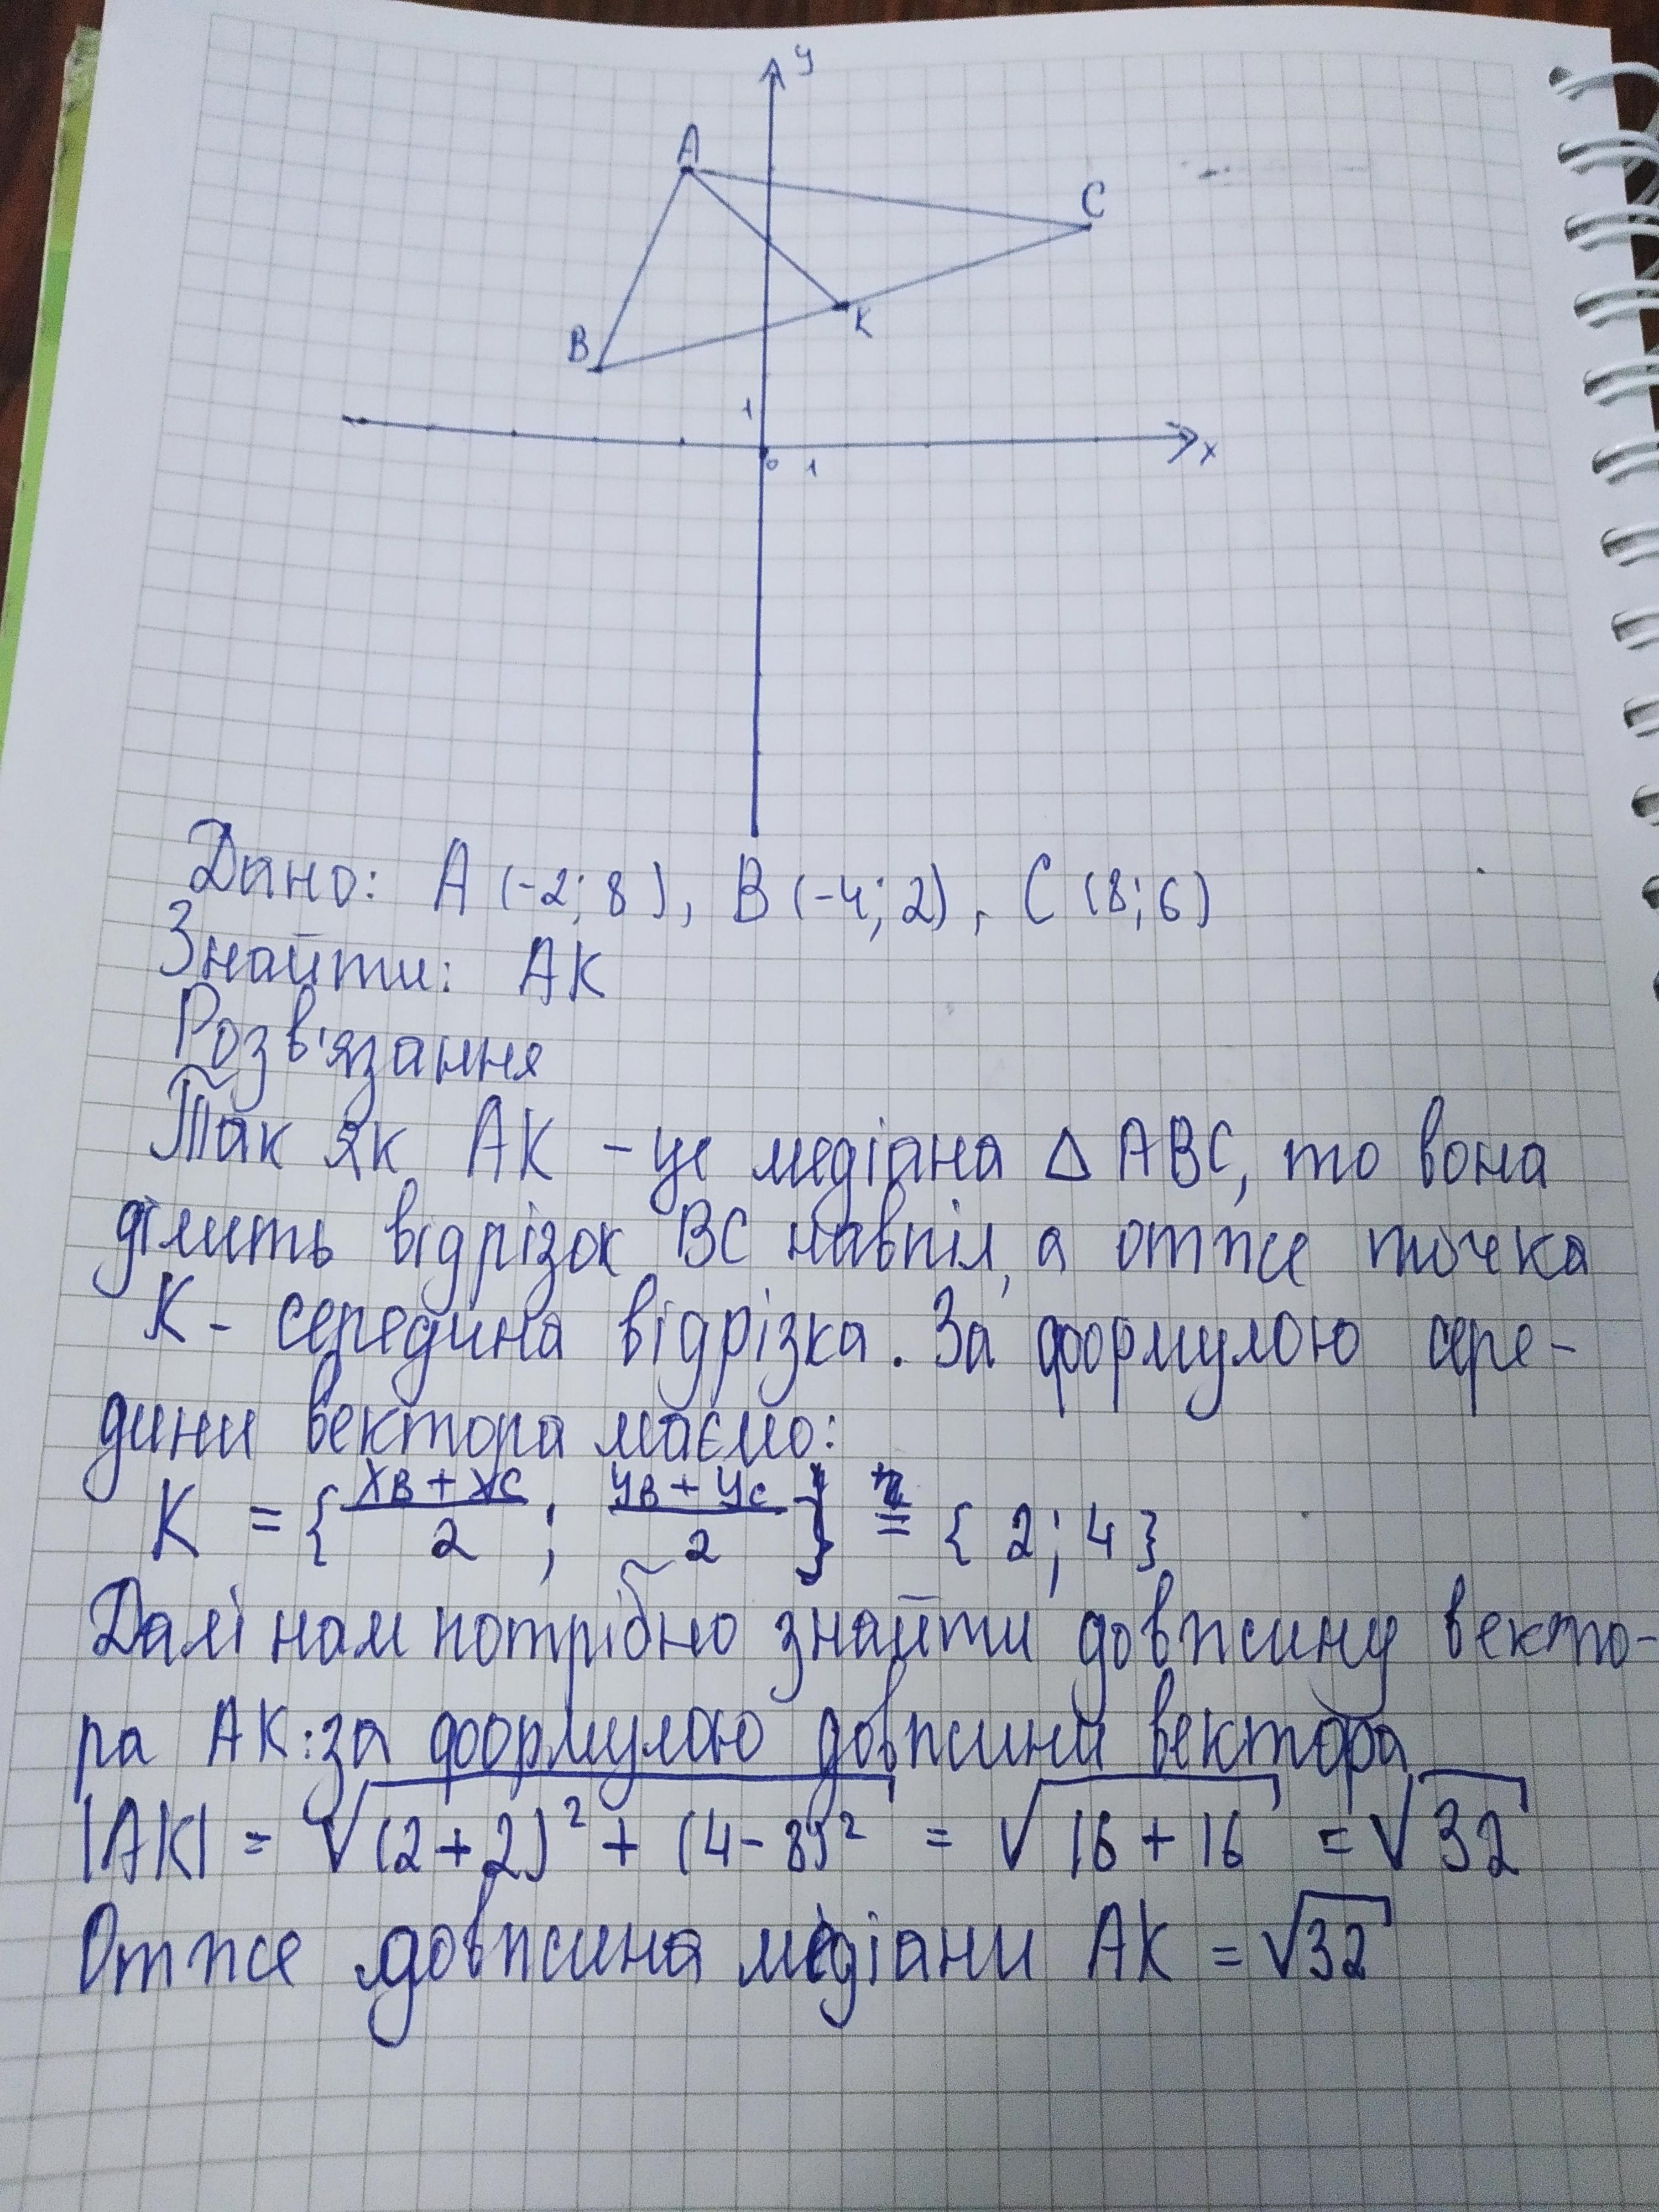 y
A
C
K
B
1
0 1 x
Дано: A (-2; 8), B (-4; 2), C (8; 6)
Знайти: AK
Розв'язання
Так як AK - це медіана △ ABC, то вона
ділить відрізок BC навпіл, а отже точка
K - середина відрізка. За формулою сере-
дини вектора маємо:
K = {(xB + xC)/2 ; (yB + yC)/2} = {2; 4}
Далі нам потрібно знайти довжину векто-
ра AK: за формулою довжини вектора
|AK| = √((2+2)² + (4-8)²) = √(16 + 16) = √32
Отже довжина медіани AK = √32